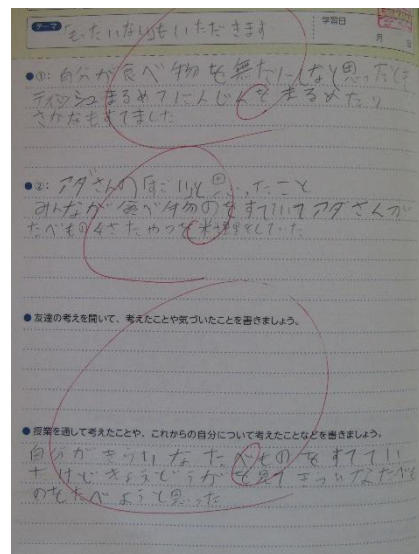 テーマ 「もったいない」もいただきます
学習日
月 日
●①: 自分が食べ物を無だにしたなと思ったとき
ティッシュまるめてにんじんをまるめたり
さかなもすてました
●②: アダさんの「すごい」と思ったこと
みんなが食べ物のをすてていてアダさんが
たべもの
料理をしていた
●友達の考えを聞いて、考えたことや気づいたことを書きましょう。
●授業を通して考えたことや、これからの自分について考えたことなどを書きましょう。
自分がきらいなたべものをすててい
たけどきょうどうがを見てきらいなたべも
のをたべようと思った